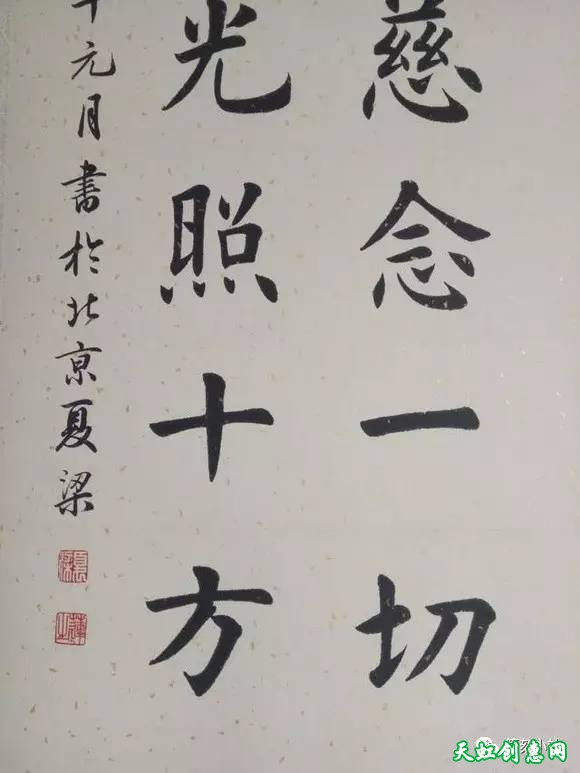 慈念一切
光照十方
年元月書於北京夏梁
天虹创惠网